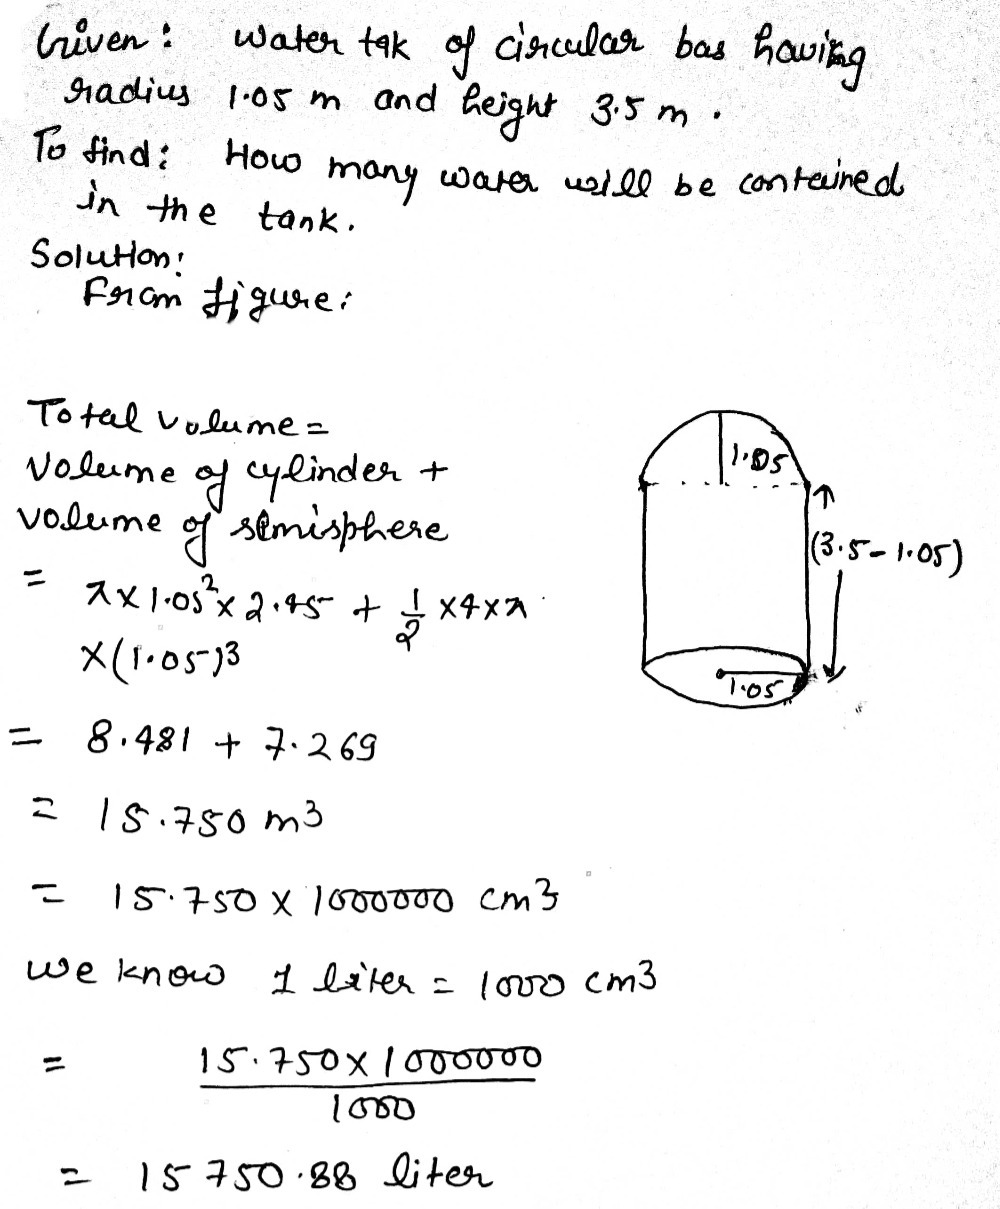 Given: Water tak of circular bas having
radius 1.05 m and height 3.5 m.
To find: How many water will be contained
in the tank.
Solution:
From figure:
Total volume =
Volume of cylinder +
volume of semisphere
= π × 1.05² × 2.45 + 1/2 × 4 × π
× (1.05)3
= 8.481 + 7.269
= 15.750 m3
= 15.750 × 1000000 cm3
we know 1 liter = 1000 cm3
= 15.750 × 1000000
1000
= 15750.88 liter
1.05
(3.5 - 1.05)
1.05